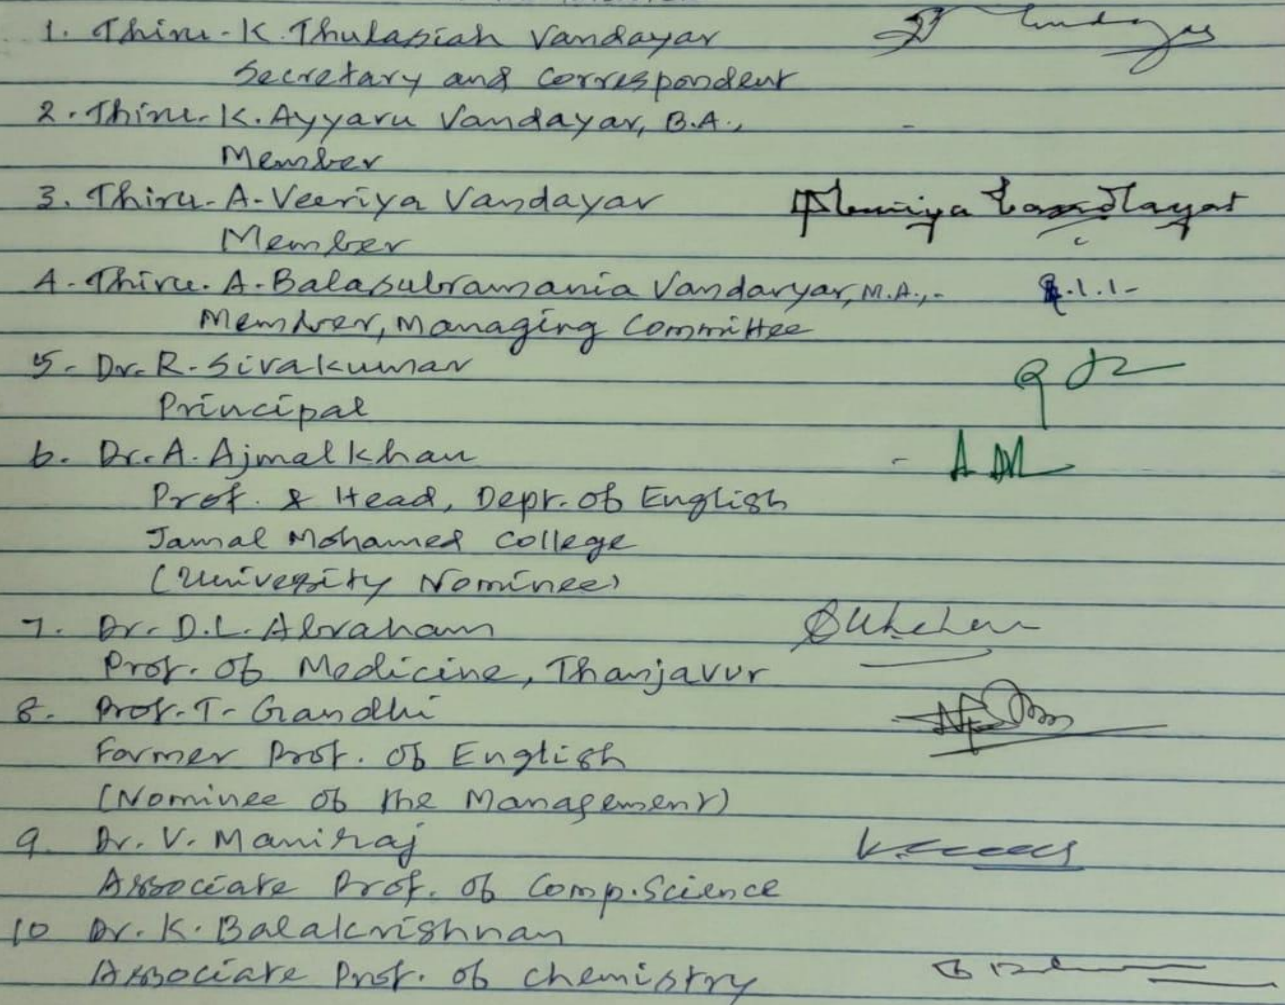 1. Thiru. K. Thulasiah Vandayar
Secretary and Correspondent
2. Thiru. K. Ayyaru Vandayar, B.A., -
Member
3. Thiru. A. Veeriya Vandayar
Member
4. Thiru. A. Balasubramania Vandaryar, M.A.,-
Member, Managing Committee
5. Dr. R. Sivakumar
Principal
6. Dr. A. Ajmal Khan -
Prof. & Head, Dept. of English
Jamal Mohamed College
(University Nominee)
7. Dr. D.L. Abraham
Prof. of Medicine, Thanjavur
8. Prof. T. Gandhi
Former Prof. of English
(Nominee of the Management)
9. Dr. V. Maniraj
Associate Prof. of Comp. Science
10 Dr. K. Balakrishnan
Associate Prof. of Chemistry